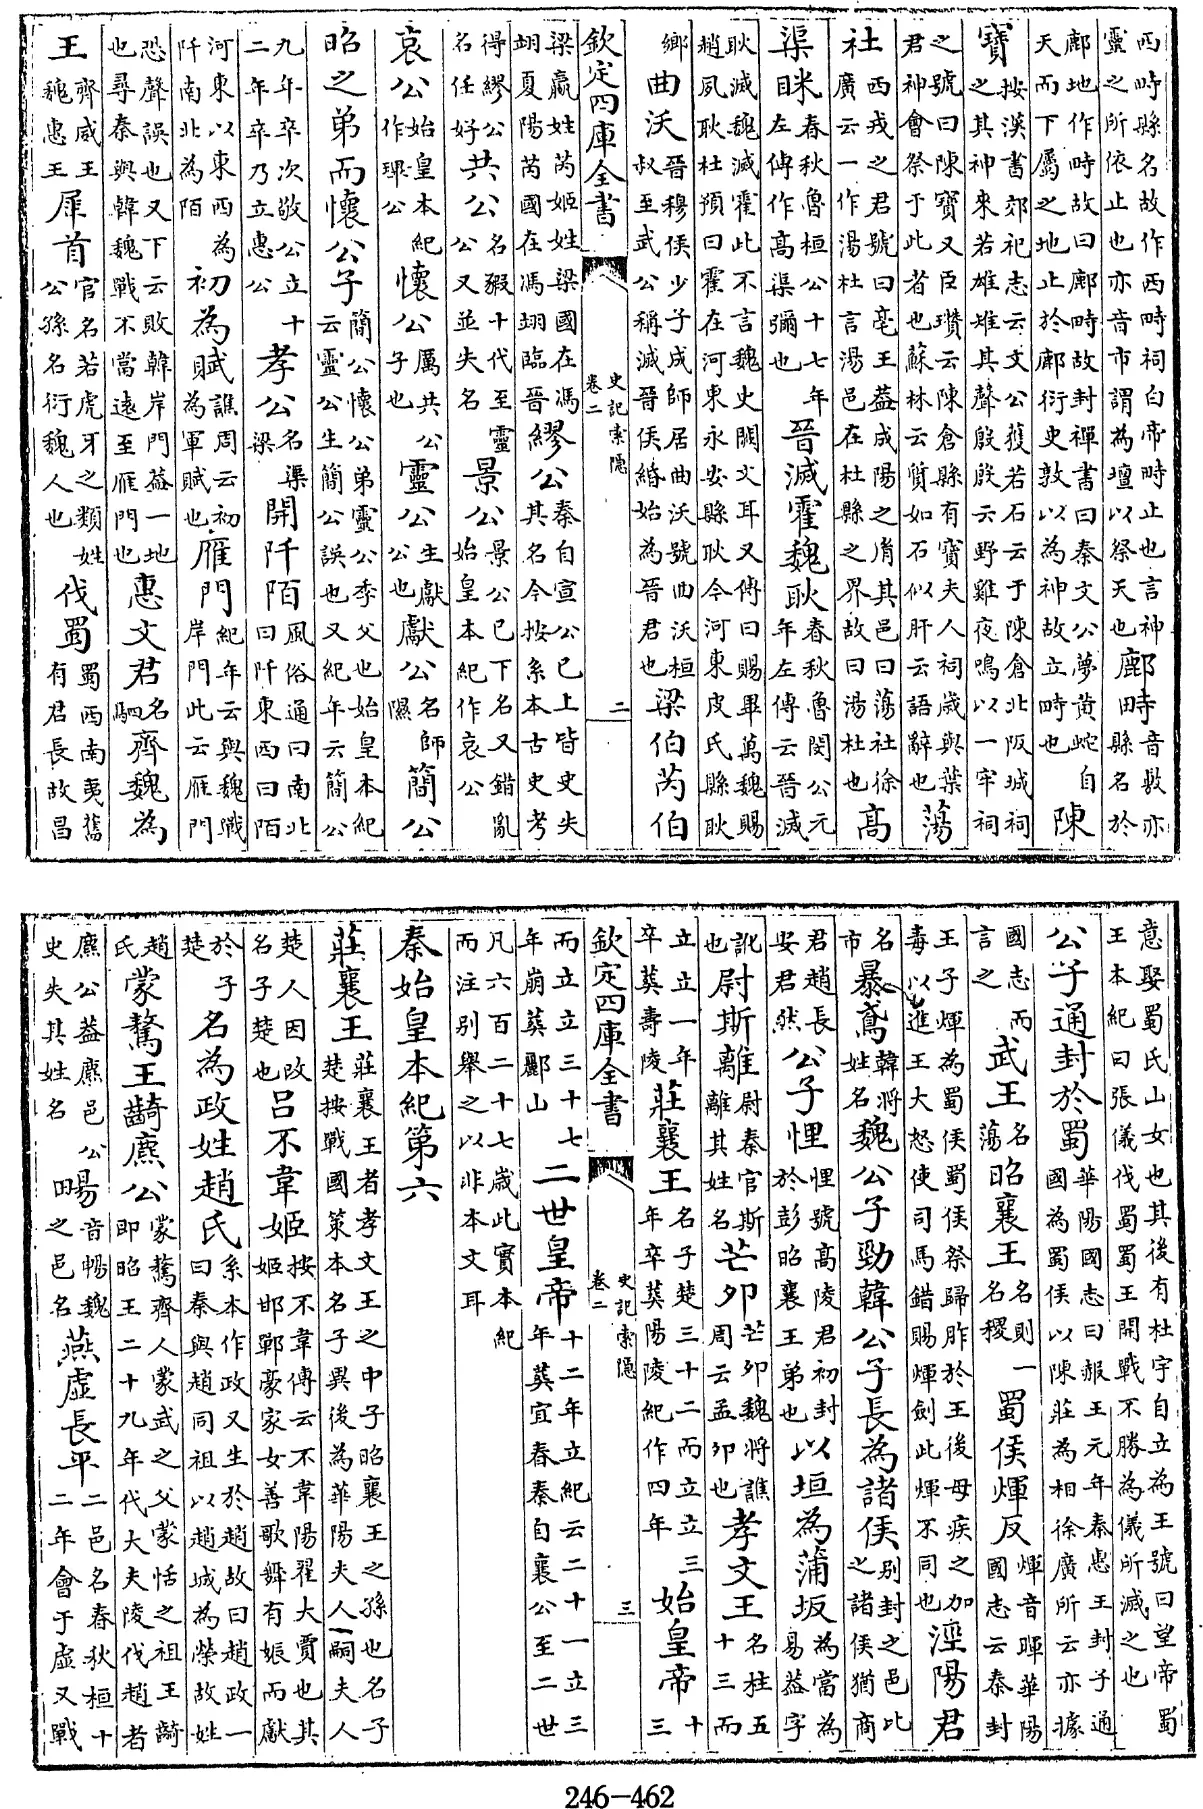 西畤縣名故作西畤祠白帝畤止也言神靈之所依止也亦音市謂為壇以祭天也鄜畤音敷亦縣名於
鄜地作畤故曰鄜畤故封禪書曰秦文公夢黄蛇自天而下屬之地止於鄜衍史敦以為神故立畤也陳
寳按漢書郊祀志云文公獲若石云于陳倉北阪城祠之其神來若雄雉其聲殷殷云野雞夜鳴以一牢祠
之號曰陳寳又臣瓚云陳倉縣有寳夫人祠歳與葉君神會祭于此者也蘇林云質如石似肝云語辭也蕩
社西戎之君號曰亳王葢成陽之𦙍其邑曰蕩社徐廣云一作湯杜言湯邑在杜縣之界故曰湯杜也高
渠眯春秋魯桓公十七年左傳作高渠彌也晉滅霍魏耿春秋魯閔公元年左傳云晉滅
耿滅魏滅霍此不言魏史闕文耳又傳曰賜畢萬魏賜趙夙耿杜預曰霍在河東永安縣耿今河東皮氏縣耿
鄉曲沃晉穆侯少子成師居曲沃號曲沃桓叔至武公稱滅晉侯緡始為晉君也梁伯芮伯
欽定四庫全書 史記索隱 卷二 二
梁嬴姓芮姬姓梁國在馮翊夏陽芮國在馮翊臨晉繆公秦自宣公已上皆史失其名今按系本古史考
得繆公名任好共公名豱十代至靈公又並失名景公景公已下名又錯亂始皇本紀作哀公
哀公始皇本紀作公懷公厲共公子也靈公生獻公也獻公名師隰簡公
昭之弟而懷公子簡公懷公弟靈公季父也始皇本紀云靈公生簡公誤也又紀年云簡公
九年卒次敬公立十二年卒乃立惠公孝公名渠梁開阡陌風俗通曰南北曰阡東西曰陌
河東以東西為阡南北為陌初為賦譙周云初為軍賦也雁門紀年云與魏戰岸門此云雁門
恐聲誤也又下云敗韓岸門葢一地也尋秦與韓魏戰不當遠至雁門也惠文君名駟齊魏為
王齊威王魏惠王犀首官名若虎牙之類姓公孫名衍魏人也伐蜀蜀西南夷舊有君長故昌
意娶蜀氏山女也其後有杜宇自立為王號曰望帝蜀王本紀曰張儀伐蜀蜀王開戰不勝為儀所滅之也蜀
公子通封於蜀華陽國志曰赧王元年秦惠王封子通國為蜀侯以陳莊為相徐廣所云亦據
國志而言之武王名蕩昭襄王名則一名稷蜀侯煇反煇音暉華陽國志云秦封
王子煇為蜀侯蜀侯祭歸胙於王後母疾之加毒以進王大怒使司馬錯賜煇劍此煇不同也涇陽君
名市暴鳶韓將姓名魏公子勁韓公子長為諸侯别封之邑比之諸侯猶商
君趙長安君然公子悝悝號高陵君初封於彭昭襄王弟也以垣為蒲坂為當為易葢字
訛也尉斯離尉秦官斯離其姓名芒卯芒卯魏將譙周云孟卯也孝文王名柱五十三而
立立一年卒葬壽陵莊襄王名子楚三十二而立立三年卒葬陽陵紀作四年始皇帝十三
欽定四庫全書 史記索隱 卷二 三
而立立三十七年崩葬酈山二世皇帝十二年立紀云二十一立三年葬宜春秦自襄公至二世
凡六百二十七歳此實本紀而注别舉之以非本文耳
秦始皇本紀第六
莊襄王莊襄王者孝文王之中子昭襄王之孫也名子楚按戰國策本名子異後為華陽夫人嗣夫人
楚人因改名子楚也吕不韋姬按不韋傳云不韋陽翟大賈也其姬邯鄲豪家女善歌舞有娠而獻
於子楚名為政姓趙氏系本作政又生於趙故曰趙政一曰秦與趙同祖以趙城為榮故姓
趙氏蒙驁王齮麃公蒙驁齊人蒙武之父蒙恬之祖王齮即昭王二十九年代大夫陵伐趙者
麃公葢麃邑公史失其姓名暘音暢魏田之邑名燕虚長平二邑名春秋桓十二年會于虚又戰
246-462